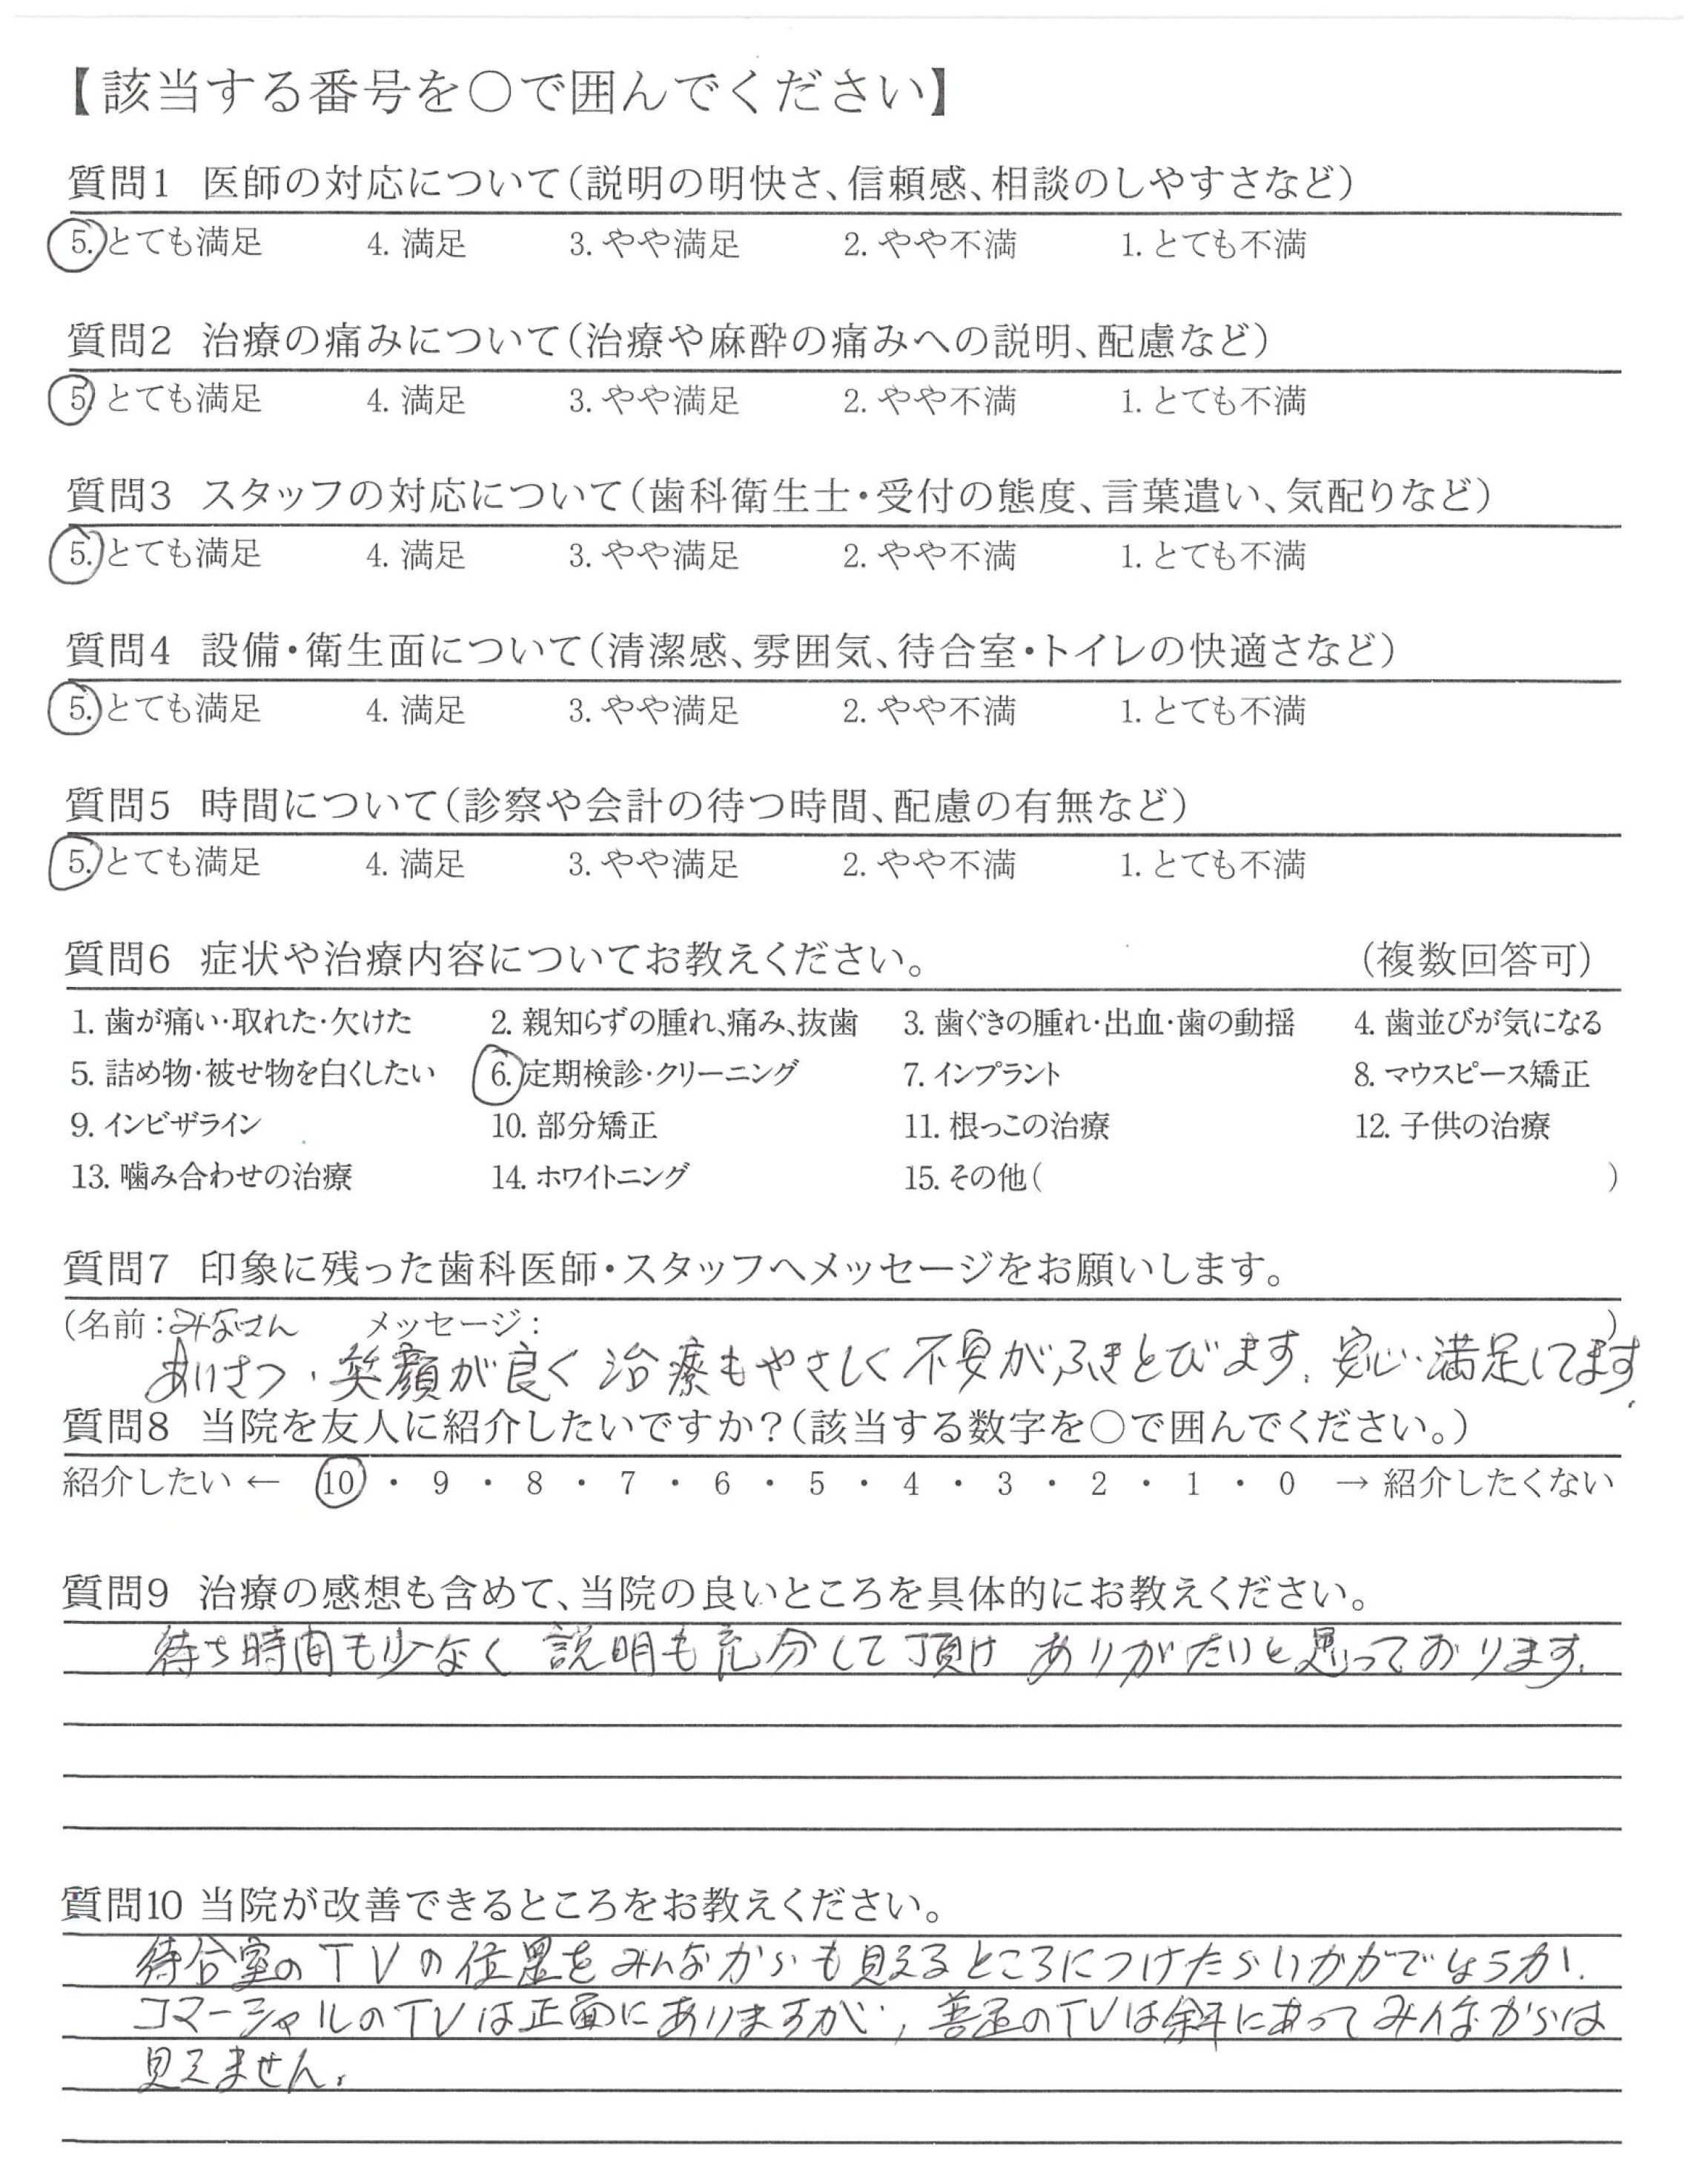 【該当する番号を○で囲んでください】
質問1 医師の対応について(説明の明快さ、信頼感、相談のしやすさなど)
5. とても満足 4. 満足 3. やや満足 2. やや不満 1. とても不満
質問2 治療の痛みについて(治療や麻酔の痛みへの説明、配慮など)
5. とても満足 4. 満足 3. やや満足 2. やや不満 1. とても不満
質問3 スタッフの対応について(歯科衛生士・受付の態度、言葉遣い、気配りなど)
5. とても満足 4. 満足 3. やや満足 2. やや不満 1. とても不満
質問4 設備・衛生面について(清潔感、雰囲気、待合室・トイレの快適さなど)
5. とても満足 4. 満足 3. やや満足 2. やや不満 1. とても不満
質問5 時間について(診察や会計の待つ時間、配慮の有無など)
5. とても満足 4. 満足 3. やや満足 2. やや不満 1. とても不満
質問6 症状や治療内容についてお教えください。 (複数回答可)
1. 歯が痛い・取れた・欠けた 2. 親知らずの腫れ、痛み、抜歯 3. 歯ぐきの腫れ・出血・歯の動揺 4. 歯並びが気になる
5. 詰め物・被せ物を白くしたい 6. 定期検診・クリーニング 7. インプラント 8. マウスピース矯正
9. インビザライン 10. 部分矯正 11. 根っこの治療 12. 子供の治療
13. 噛み合わせの治療 14. ホワイトニング 15. その他( )
質問7 印象に残った歯科医師・スタッフへメッセージをお願いします。
(名前:みなさん メッセージ: )
あいさつ・笑顔が良く 治療もやさしく 不安がふきとびます。安心・満足してます。
質問8 当院を友人に紹介したいですか?(該当する数字を○で囲んでください。)
紹介したい ← 10 ・ 9 ・ 8 ・ 7 ・ 6 ・ 5 ・ 4 ・ 3 ・ 2 ・ 1 ・ 0 → 紹介したくない
質問9 治療の感想も含めて、当院の良いところを具体的にお教えください。
待ち時間も少なく 説明も充分して頂け ありがたいと思っております。
質問10 当院が改善できるところをお教えください。
待合室のTVの位置をみんなからも見えるところにつけたらいかがでしょうか。
コマーシャルのTVは正面にありますが、普通のTVは斜にあってみんなからは
見えません。